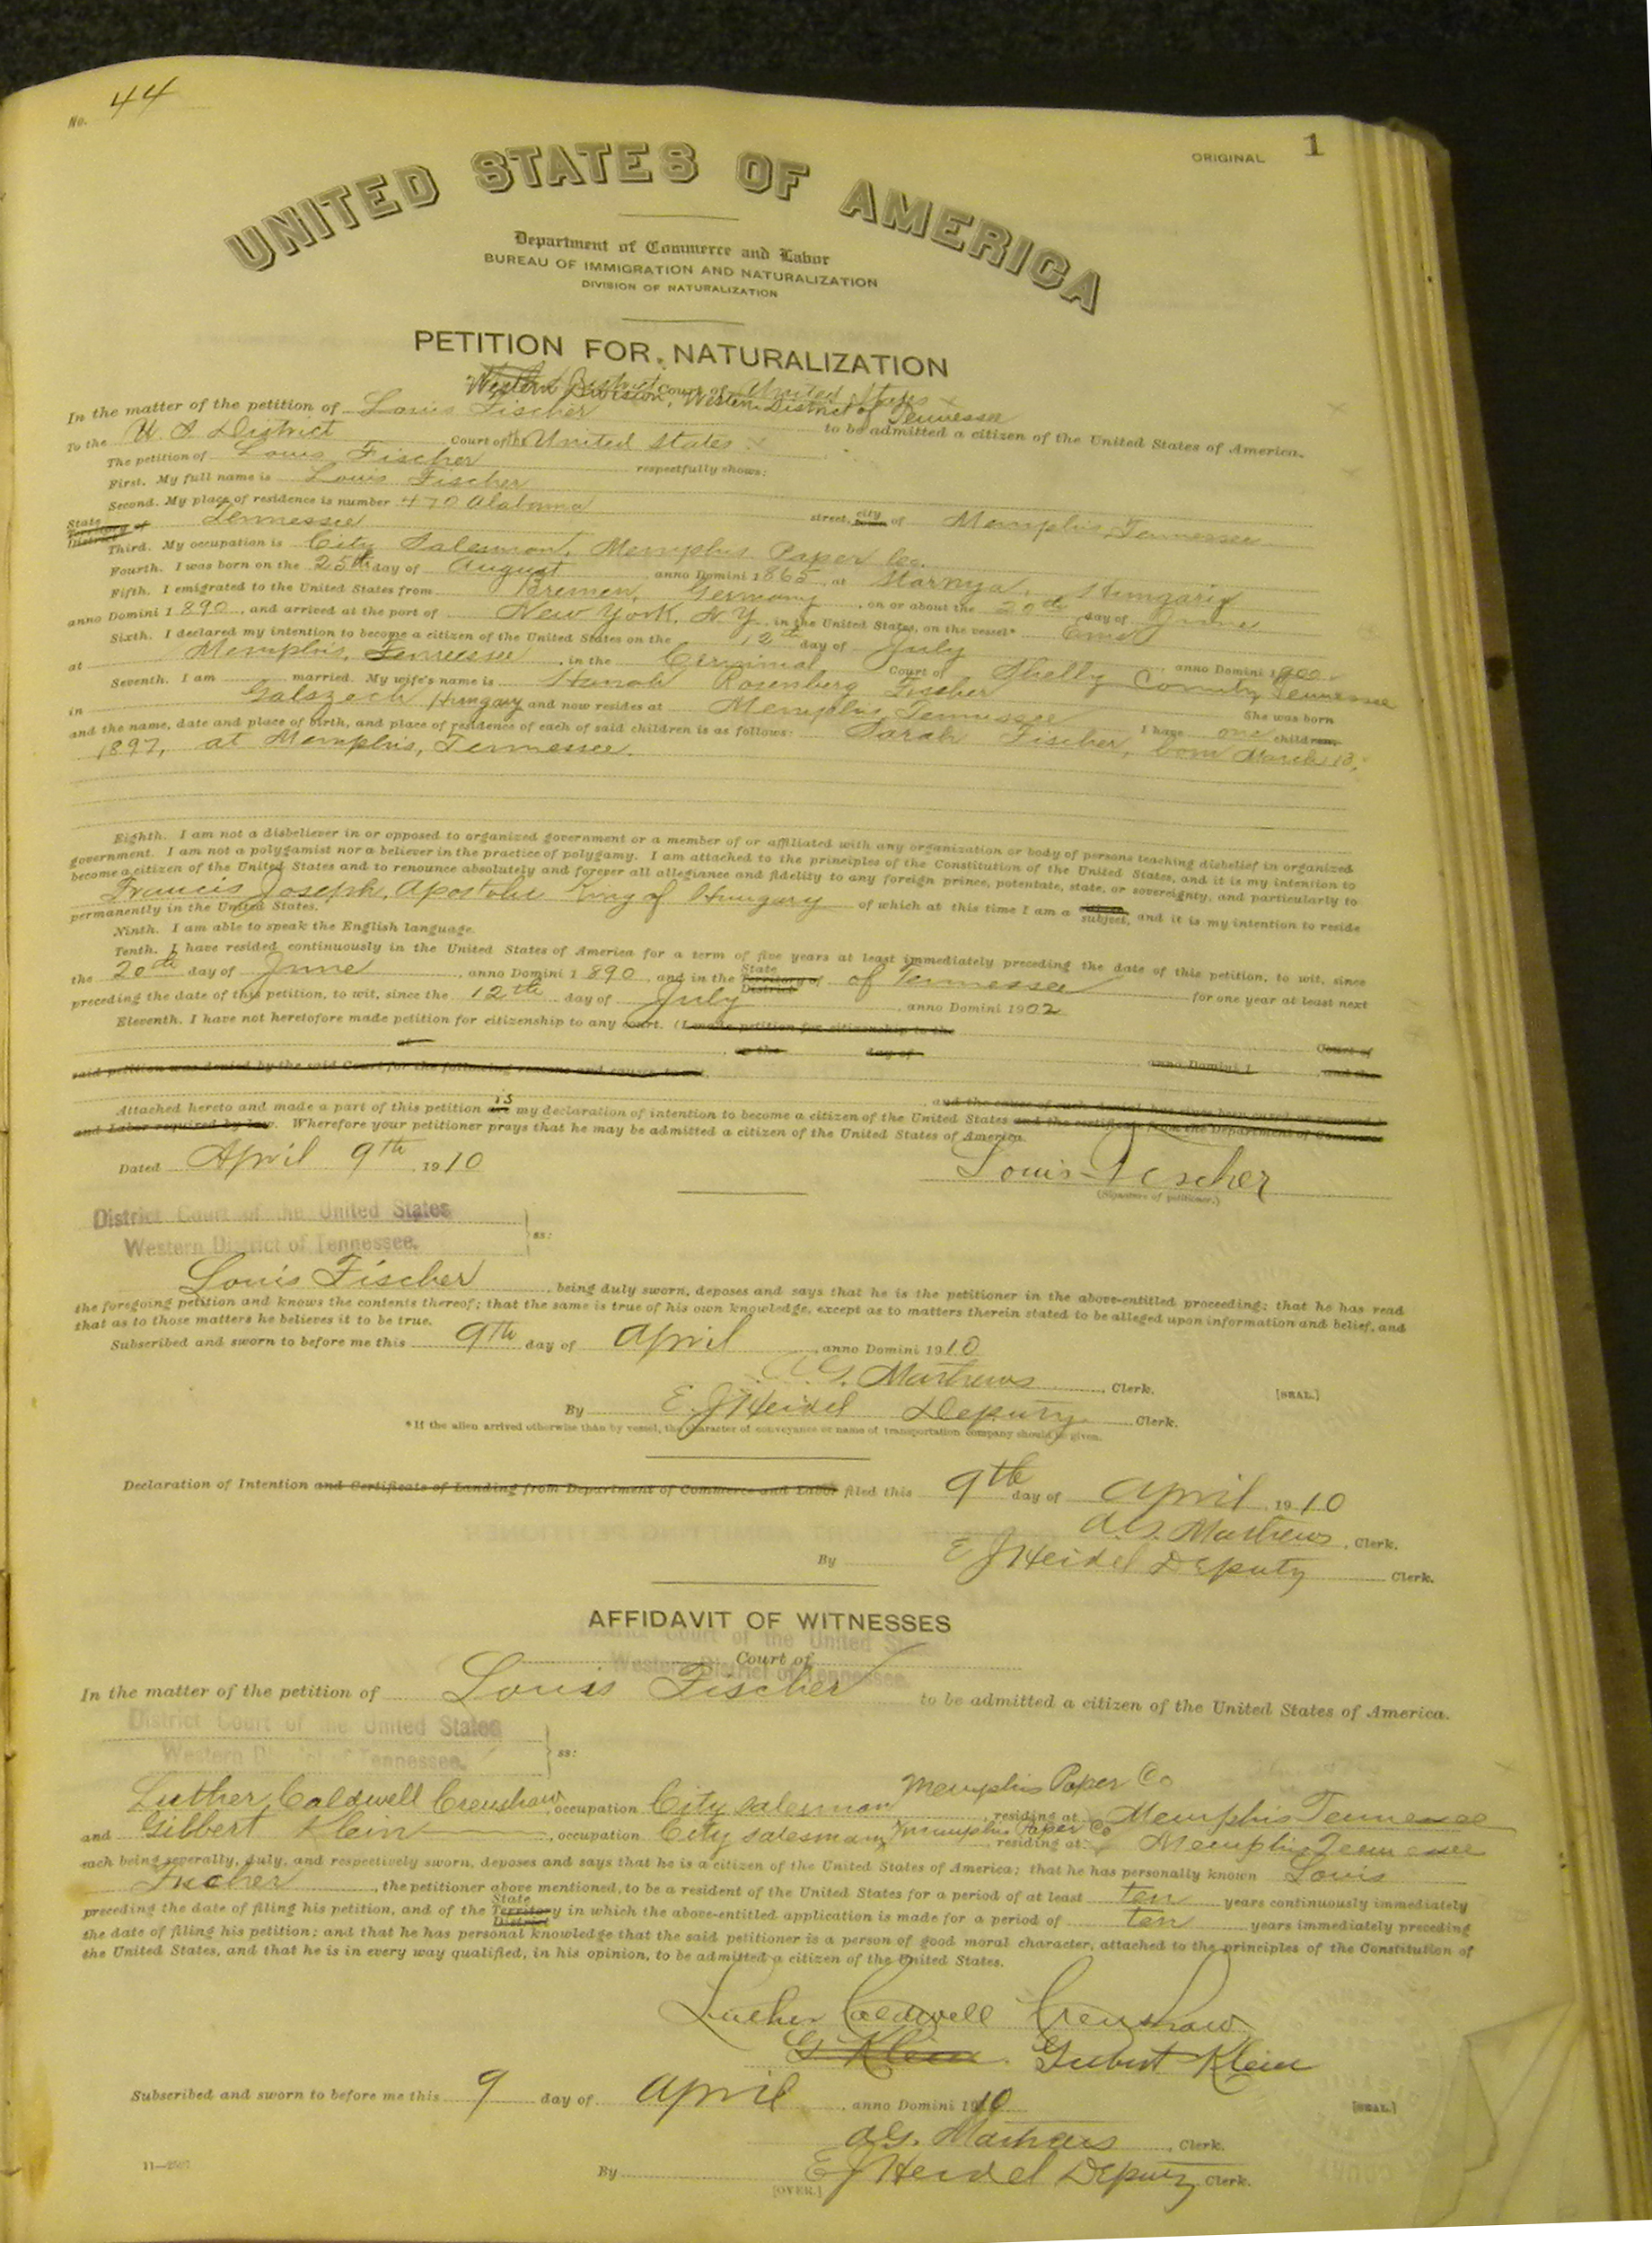 No. 44
ORIGINAL 1
UNITED STATES OF AMERICA
Department of Commerce and Labor
BUREAU OF IMMIGRATION AND NATURALIZATION
DIVISION OF NATURALIZATION
PETITION FOR NATURALIZATION
Western District Court of United States
Western Division, Western District of Tennessee
In the matter of the petition of Louis Fischer to be admitted a citizen of the United States of America.
To the U. S District Court of the United States
The petition of Louis Fischer respectfully shows:
First. My full name is Louis Fischer
Second. My place of residence is number 470 Alabama street, city of Memphis, Tennessee
State Territory of District Tennessee
Third. My occupation is City Salesman, Memphis Paper Co.
Fourth. I was born on the 25th day of August anno Domini 1865, at Hungary
Fifth. I emigrated to the United States from Bremen, Germany, on or about the 20th day of June
anno Domini 1890, and arrived at the port of New York, N. Y., in the United States, on the vessel* Ems
Sixth. I declared my intention to become a citizen of the United States on the 12th day of July anno Domini 1900
at Memphis, Tennessee, in the Criminal Court of Shelby County Tennessee
Seventh. I am married. My wife's name is Hanah Rosenberg Fischer She was born
in Galszech Hungary and now resides at Memphis, Tennessee I have one children,
and the name, date and place of birth, and place of residence of each of said children is as follows: Sarah Fischer, born March 13,
1897, at Memphis, Tennessee.
Eighth. I am not a disbeliever in or opposed to organized government or a member of or affiliated with any organization or body of persons teaching disbelief in organized
government. I am not a polygamist nor a believer in the practice of polygamy. I am attached to the principles of the Constitution of the United States, and it is my intention to
become a citizen of the United States and to renounce absolutely and forever all allegiance and fidelity to any foreign prince, potentate, state, or sovereignty, and particularly to
Francis Joseph, Apostolic King of Hungary of which at this time I am a citizen subject, and it is my intention to reside
permanently in the United States.
Ninth. I am able to speak the English language.
Tenth. I have resided continuously in the United States of America for a term of five years at least immediately preceding the date of this petition, to wit, since
the 20th day of June, anno Domini 1890, and in the State Territory of District of Tennessee for one year at least next
preceding the date of this petition, to wit, since the 12th day of July, anno Domini 1902
Eleventh. I have not heretofore made petition for citizenship to any court. (I made petition for citizenship to the
Court of
at , on the day of , anno Domini 1 , and the
said petition was denied by the said Court for the following reasons and causes, to wit,
, and the cause of such denial has since been cured or removed.)
Attached hereto and made a part of this petition are is my declaration of intention to become a citizen of the United States and the certificate from the Department of Commerce
and Labor required by law. Wherefore your petitioner prays that he may be admitted a citizen of the United States of America.
Dated April 9th, 1910 Louis Fischer
(Signature of petitioner.)
District Court of the United States
Western District of Tennessee. ss:
Louis Fischer, being duly sworn, deposes and says that he is the petitioner in the above-entitled proceeding; that he has read
the foregoing petition and knows the contents thereof; that the same is true of his own knowledge, except as to matters therein stated to be alleged upon information and belief, and
that as to those matters he believes it to be true.
Subscribed and sworn to before me this 9th day of April, anno Domini 1910
A. G. Mathews, Clerk. [SEAL.]
By E. J Heidel Deputy Clerk.
*If the alien arrived otherwise than by vessel, the character of conveyance or name of transportation company should be given.
Declaration of Intention and Certificate of Landing from Department of Commerce and Labor filed this 9th day of April, 1910
A. G. Mathews, Clerk.
By E J Heidel Deputy Clerk.
AFFIDAVIT OF WITNESSES
District Court of the United States
Court of
Western District of Tennessee
In the matter of the petition of Louis Fischer to be admitted a citizen of the United States of America.
District Court of the United States
Western District of Tennessee. ss:
Memphis Paper Co
Luther Caldwell Crenshaw, occupation City salesman, residing at Memphis Tennessee
and Gilbert Klein, occupation City salesman, Memphis Paper Co residing at Memphis Tennessee
each being severally, duly, and respectively sworn, deposes and says that he is a citizen of the United States of America; that he has personally known Louis
Fischer, the petitioner above mentioned, to be a resident of the United States for a period of at least ten years continuously immediately
preceding the date of filing his petition, and of the State Territory District in which the above-entitled application is made for a period of ten years immediately preceding
the date of filing his petition; and that he has personal knowledge that the said petitioner is a person of good moral character, attached to the principles of the Constitution of
the United States, and that he is in every way qualified, in his opinion, to be admitted a citizen of the United States.
Luther Caldwell Crenshaw
G Klein. Gilbert Klein
Subscribed and sworn to before me this 9 day of April, anno Domini 1910 [SEAL.]
A. G. Mathews, Clerk.
By E J Heidel Deputy Clerk.
[OVER.]